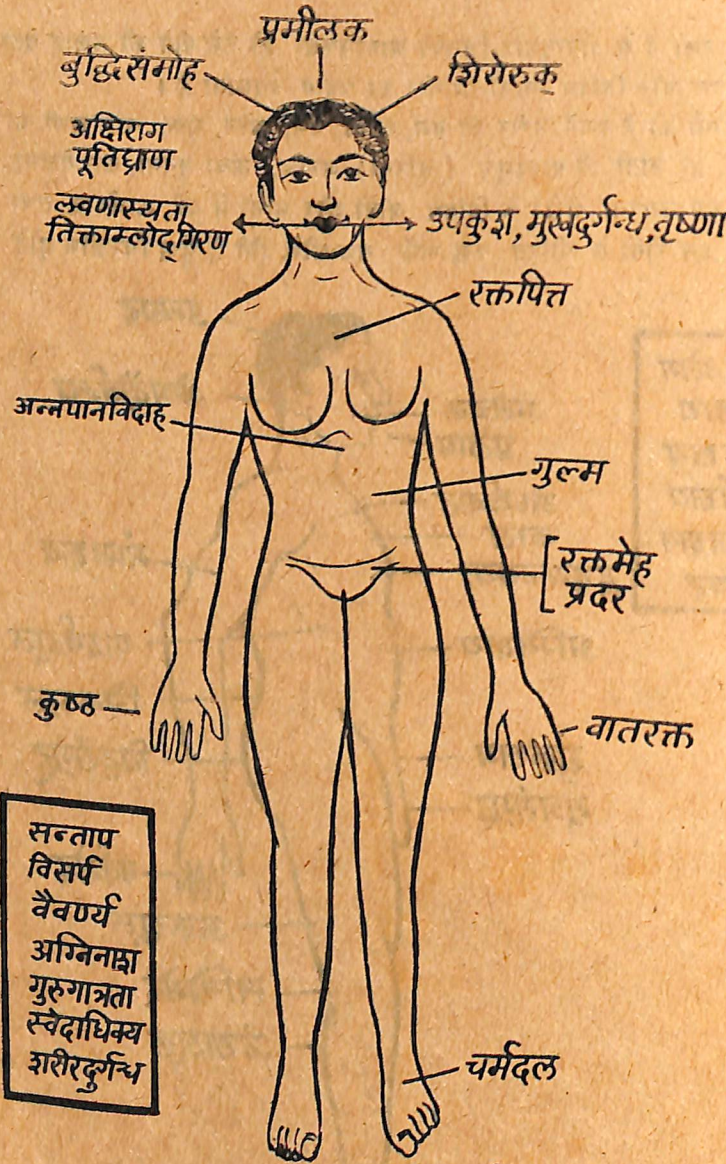 प्रमीलक
बुद्धिसंमोह
शिरोरुक्
अक्षिराग
पूतिघ्राण
लवणास्यता
तिक्ताम्लोद्गिरण
उपकुश, मुखदुर्गन्ध, तृष्णा
रक्तपित्त
अन्नपानविदाह
गुल्म
रक्तमेह
प्रदर
कुष्ठ
वातरक्त
सन्ताप
विसर्प
वैवर्ण्य
अग्निनाश
गुरुगात्रता
स्वेदाधिक्य
शरीरदुर्गन्ध
चर्मदल